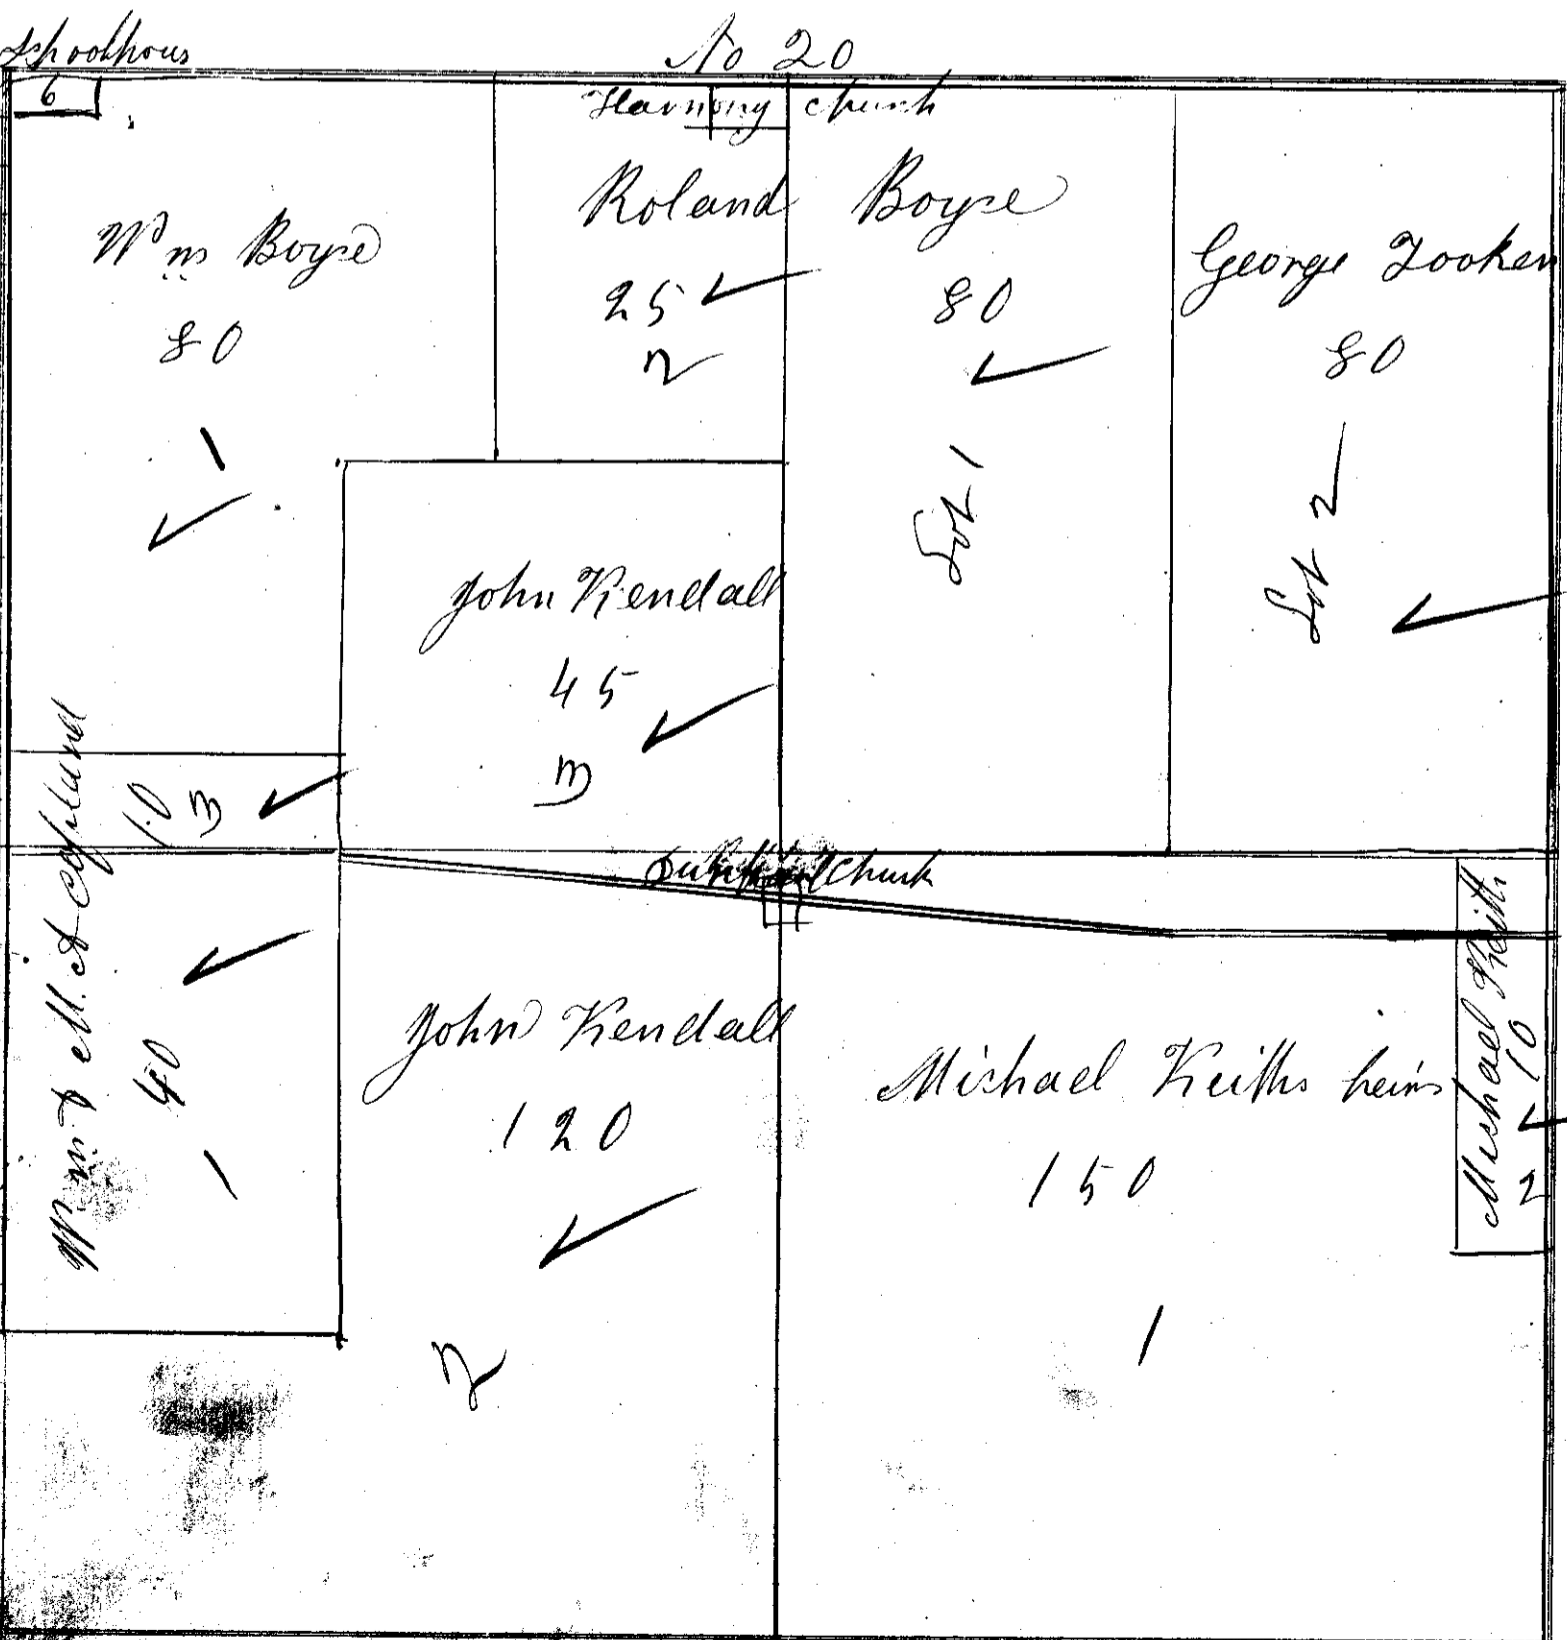 Schoolhous
No 20
6
Harmony Church
Wm Boyse
80
1
Roland Boyse
25
2
80
Lot 1
George Zooken
80
Lot 2
John Kendall
45
3
10
3
Wm & M. A Copland
40
1
Church
John Kendall
120
2
Michael Keiths heirs
150
1
Michael Keith
10
2